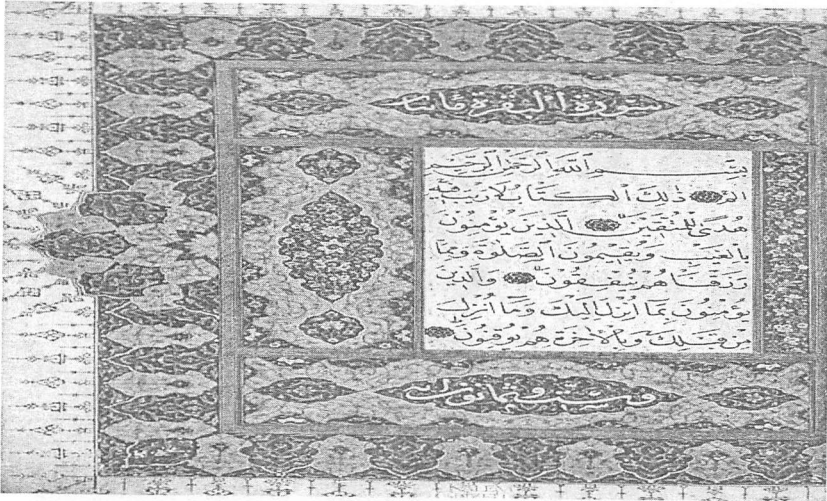 سورة البقرة مائتا
بسم الله الرحمن الرحيم
الم ذٰلك الكتاب لا ريب فيه
هدى للمتقين الذين يؤمنون
بالغيب ويقيمون الصلوة ومما
رزقناهم ينفقون والذين
يؤمنون بما أنزل إليك وما أنزل
من قبلك وبالآخرة هم يوقنون
وست وثمانون آية